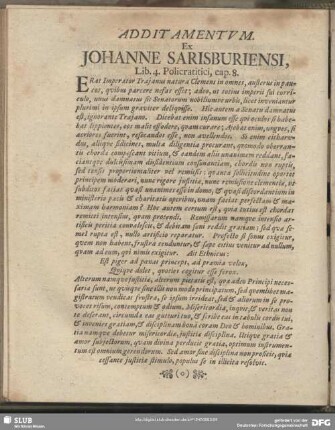 ADDITAMENTVM.
Ex
JOHANNE SARISBURIENSI,
Lib. 4. Policratitici, cap. 8.
ERat Imperator Trajanus natura Clemens in omnes, austerus in pau-
cos, quibus parcere nefas esset; adeo, ut totius imperii sui curri-
culo, unus damnatus sit Senatorum nobiliumve urbis, licet inveniantur
plurimi in ipsum graviter deliquisse. Hic autem a Senatu damnatus
est, ignorante Trajano. Dicebat enim insanum esse qui
lippientes, eos malit effodere, quam curare; Ajebat enim, ungves, si
acriores fuerint, resecandos esse, non avellendos. Si enim citharœ-
dus, aliique fidicines, multa diligentia procurant, quomodo oberran-
tis chordæ compescant vitium, & eandem aliis unanimem reddant, fa-
ciantque dulcissimam dissidentium consonantiam, chordis non ruptis,
sed tensis proportionaliter vel remissis; quanta sollicitudine oportet
principem moderari, nunc rigore justitiæ, nunc remissione clementiæ, ut
subditos faciat quasi unanimes esse in domo, & quasi discordantium in
ministerio pacis & charitatis operibus, unam faciat perfectam & ma-
ximam harmoniam? Hoc autem certum est, quia tutius est chordas
remitti intensius, quam protendi. Remissarum namque intensio arti-
ficis peritia convalescit, & debitam soni reddit gratiam; sed quæ se-
mel rupta est, nullo artificio reparatur. Profecto si sonus exigitur,
quem non habent, frustra tenduntur, & sæpe citius venitur ad nullum,
quam ad eum, qui nimis exigitur. Ait Ethnicus:
Est piger ad pœnas princeps, ad præmia velox,
Quique dolet, quoties cogitur esse ferox.
Alterum namque justitiæ, alterum pietatis est, quæ adeo Principi neces-
saria sunt, ut quisquis sine illis non modo principatum, sed quemlibet ma-
gistratum vendicat frustra, se ipsum irrideat, sed & aliorum in se pro-
vocet risum, contemptum & odium. Misericordia, inquit, & veritas non
te deserant, circunda eas gutturi tuo, & scribe eas in tabulis cordis tui,
& invenies gratiam, & disciplinam bonam coram Deo & hominibus. Gra-
tia namque debetur misericordiæ, justitia disciplinæ. Utique gratia &
amor subjectorum, quam divina producit gratia, optimum instrumen-
tum est omnium gerendorum. Sed amor sine disciplina non proficit, quia
cessante justitiæ stimulo, populus se in illicita resolvit.
(o)
SLUB
Wir führen Wissen.
http://digital.slub-dresden.de/
Gefördert von der
Deutschen Forschungsgemeinschaft
DFG